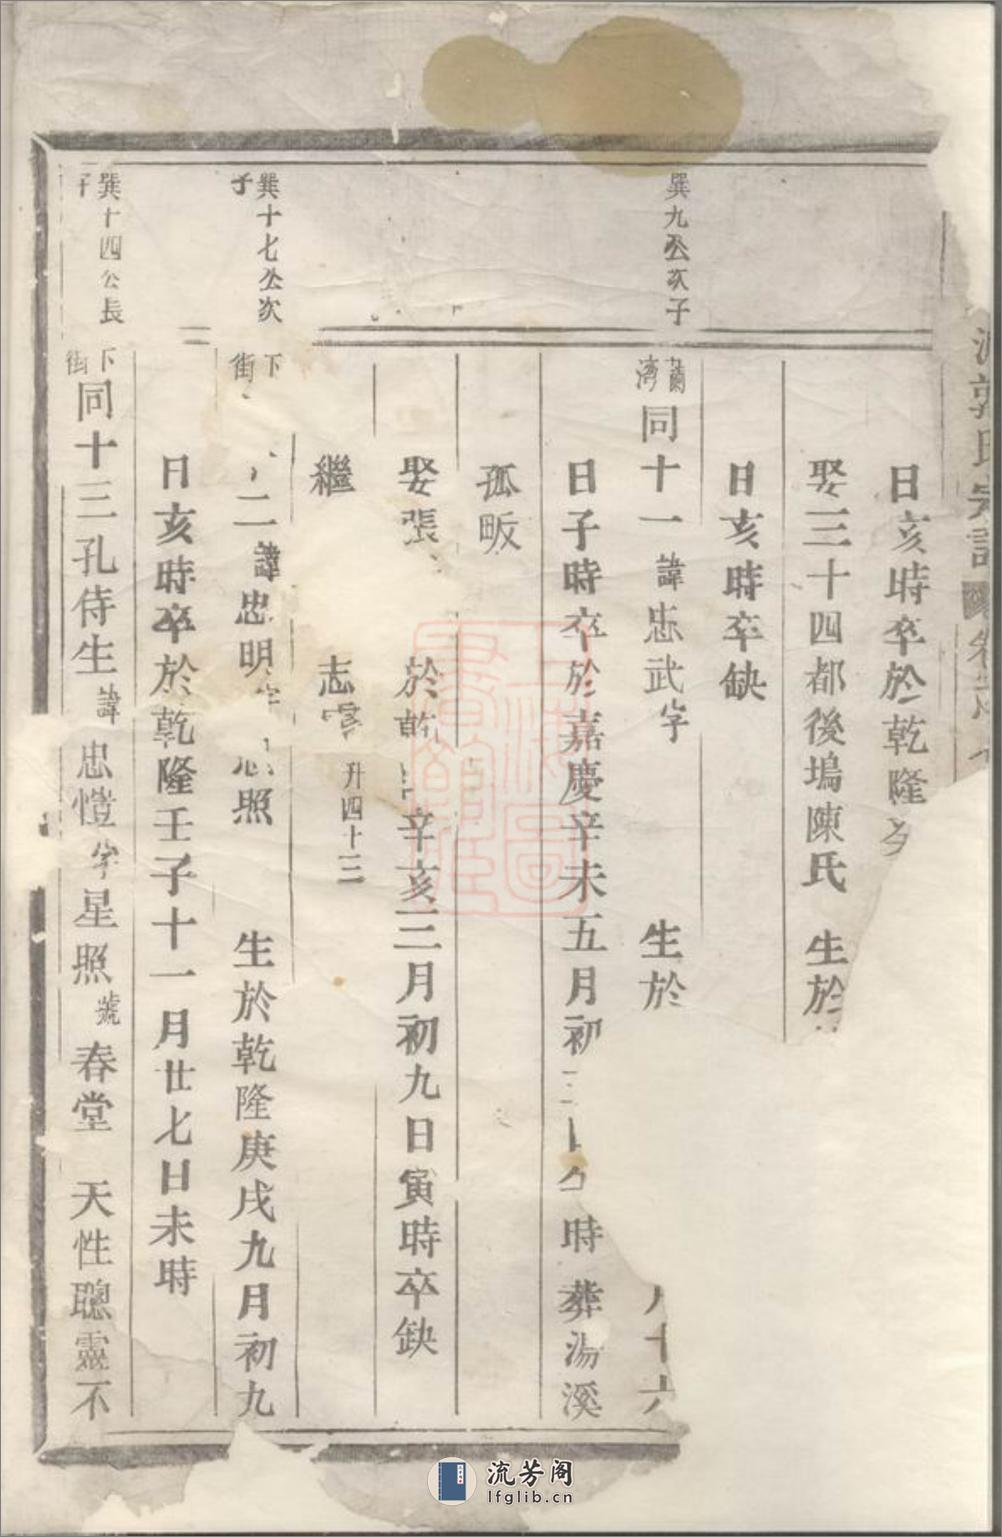 郭氏宗譜
日亥時卒於乾隆
娶三十四都後塢陳氏 生於
日亥時卒缺
巽九公次子
蘭灣 同十一 諱忠武字 生於 月十六
日子時卒於嘉慶辛未五月初 時葬湯溪
孤畈
娶張 於乾 辛亥三月初九日寅時卒缺
繼 志 升四十三
巽十七公次子
下街 二 諱忠明字 照 生於乾隆庚戌九月初九
日亥時卒於乾隆壬子十一月廿七日未時
巽十四公長子
下街 同十三孔侍生 諱忠愷字星照號春堂 天性聰靈不
上海圖書館藏
流芳阁
lfglib.cn